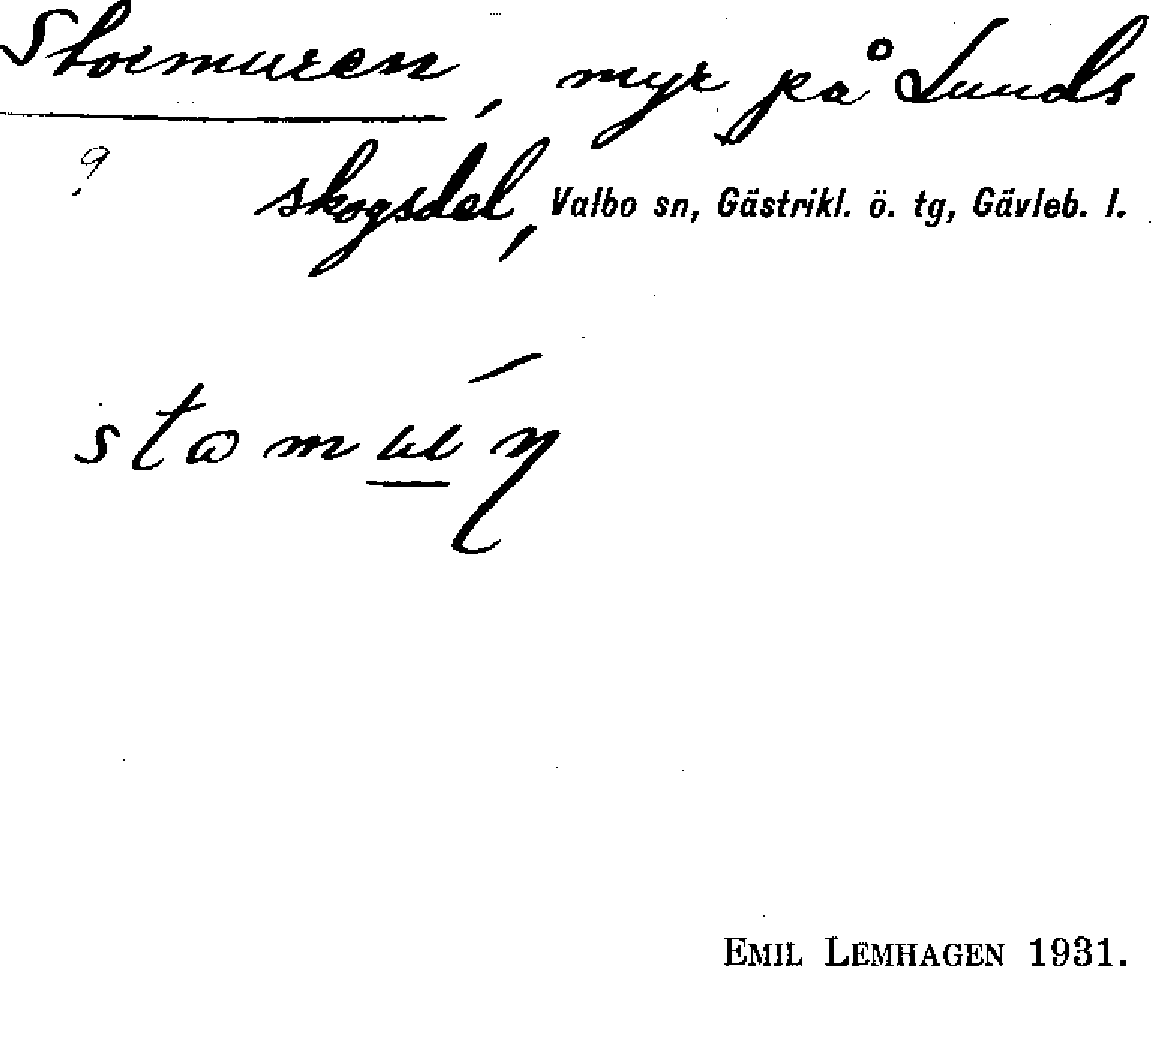 Stormuren, myr på Lunds
?
skogsdel, Valbo sn, Gästrikl. ö. tg, Gävleb. l.
EMIL LEMHAGEN 1931.